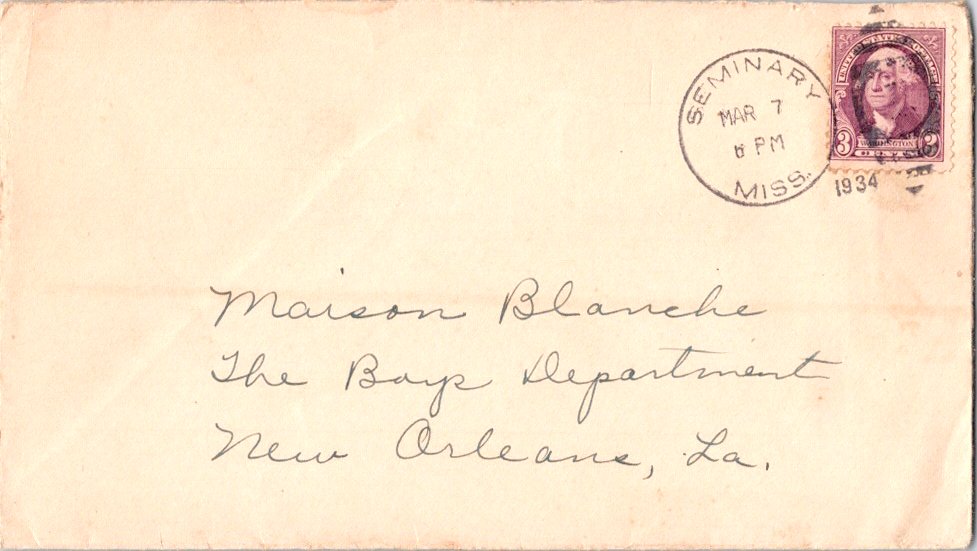 SEMINARY
MAR 7
6 PM
MISS.
1934
UNITED STATES POSTAGE
3 WASHINGTON 3
Maison Blanche
The Boys Department
New Orleans, La.